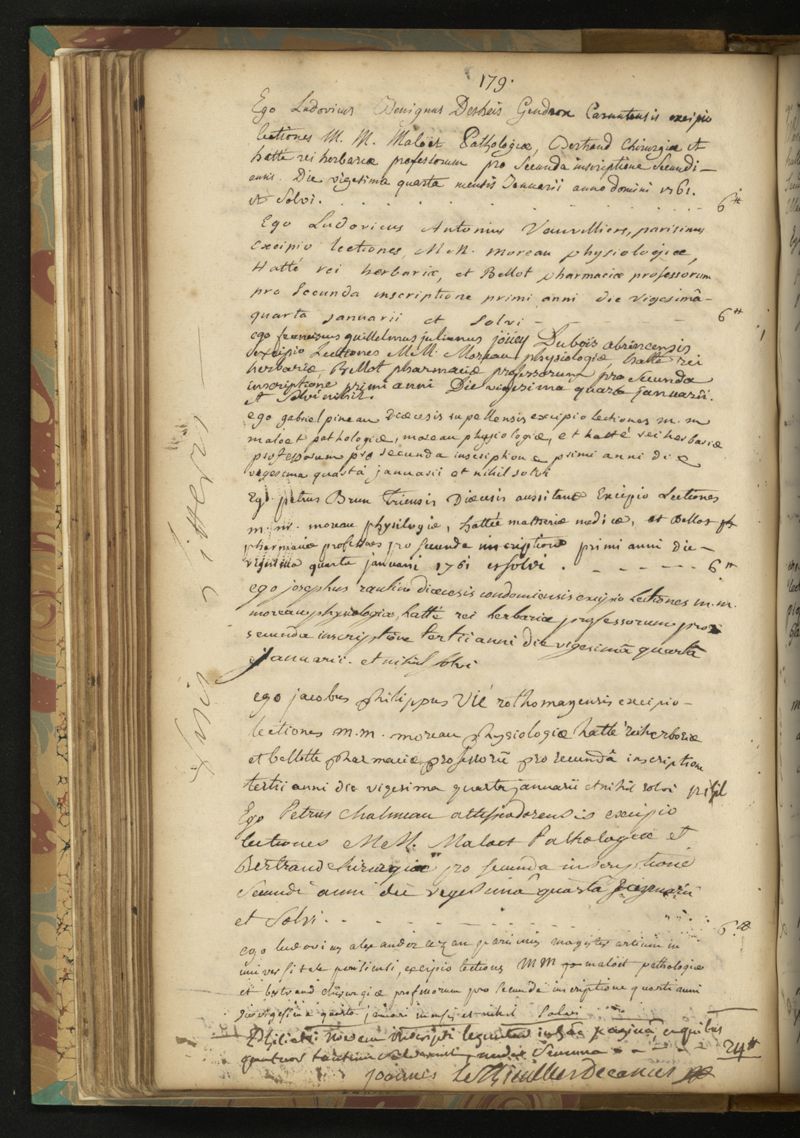 179.
Ego Ludovicus Benignus Desheis Gendron Carnutensis excipio
lectiones M. M. Maloet Pathologiæ, Bertrand Chirurgiæ et
hatté rei herbariæ professorum pro Secunda inscriptione Secundi
anni. Die vigesima quarta mensis Januarii anno domini 1761.
et Solvi. 6#
Ego Ludovicus Antonius Vauvilliers, parisinus
excipio lectiones, M.M. moreau physiologiæ,
Hatté rei herbariæ, et Bellot pharmaciæ professorum
pro Secunda inscriptione primi anni die vigesimâ
quarta Januarii et Solvi - 6#
ego franciscus guillelmus julianus Dubois abrincensis
excipio Lectiones M.M. Moreau physiologiæ hatté rei
herbariæ, Bellot pharmaciæ professorum pro Secunda
inscriptione primi anni Die vigesima quarta januarii.
et Solvi nihil.
ego gabriel pineau Diœcesis rupellensis excipio lectiones m.m
maloet pathologiæ, moreau physiologiæ, et hatté rei herbariæ
professorum pro secunda inscriptione primi anni die
vigesima quarta januarii et nihil solvi
Ego petrus Brun Diœcesis Excipio Lectiones
m. m. moreau physilogiæ, hattée matteriæ medicæ, et Bellot
pharmaciæ professores pro secunda inscriptione primi anni die
vigesima quarta januarii 1761 et solvi . - - - - - 6#
ego josephus raulin diœcesis condomiensis excipio Lectiones m.m.
moreau physiologiæ, hatté rei herbariæ professorum pro
secunda inscriptione tertii anni die vigesimâ quartâ
januarii. et nihil solvi
ego jacobus philippus Vié rothomagensis excipio
lectiones m.m. moreau physiologiæ hatté rei herbariæ
et bellotte pharmaciæ professorû pro secundâ inscriptione
tertii anni die vigesima quarta januarii et nihil solvi nihil
Ego Petrus Chalmeau altissiodorensis excipio
lectiones M.M. Maloet Pathologiæ et
Bertrand chirurgiæ pro secunda inscriptione
Secundi anni die vigesimâ quartâ januarii
et Solvi. 6#
ego ludovicus alexander parisinus magister artium in
universitate excipio lectiones MM maloet pathologiæ
et bertrand chirurgiæ professorum pro secunda inscriptione quarti anni
die vigesima quarta januarii et nihil Solvi
Philiatri novem inscripti leguntur in hac paginâ, e quibus
quatuor tantum solverunt, unde Summa - - - 24#
joannes le Thieullier Decanus